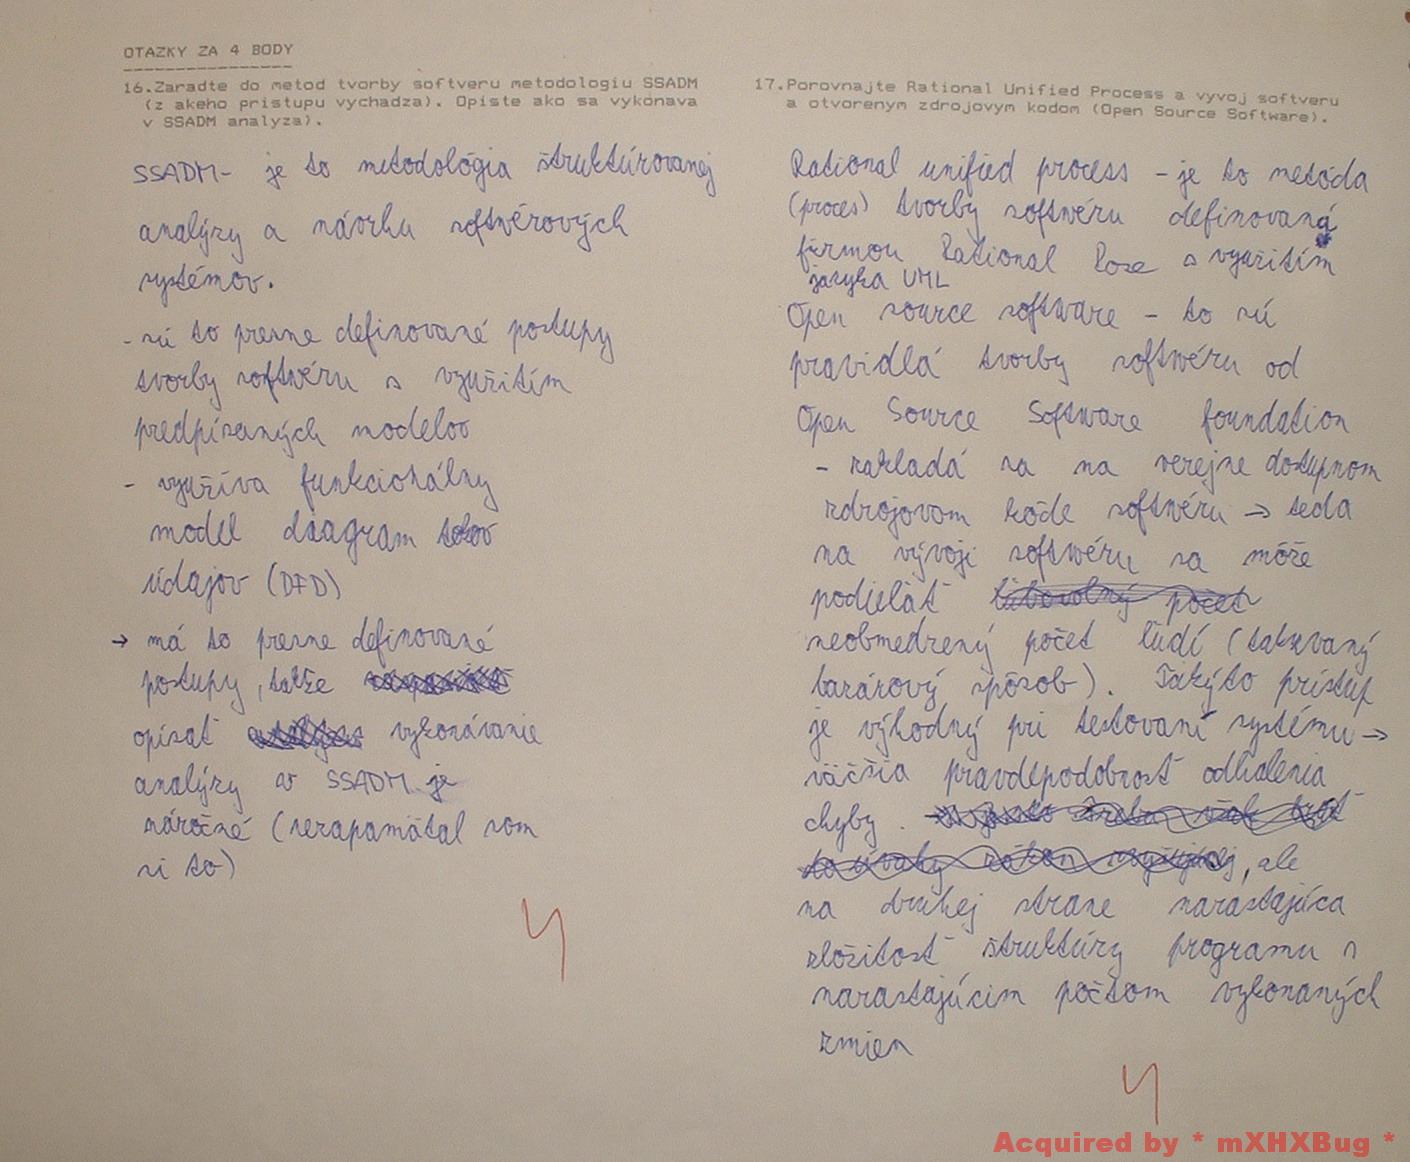 OTAZKY ZA 4 BODY
16.Zaradte do metod tvorby softveru metodologiu SSADM
(z akeho pristupu vychadza). Opiste ako sa vykonava
v SSADM analyza).
SSADM- je to metodológia štruktúrovanej
analýzy a návrhu softwérových
systémov.
- sú to presne definované postupy
tvorby softwéru s využitím
predpísaných modelov
- využíva funkcionálny
model diagram tokov
údajov (DFD)
→ má to presne definované
postupy, takže
opísať vykonávanie
analýzy v SSADM je
náročné (nezapamätal som
si to)
4
17.Porovnajte Rational Unified Process a vyvoj softveru
a otvorenym zdrojovym kodom (Open Source Software).
Rational unified process - je to metóda
(proces) tvorby softwéru definovaná
firmou Rational Rose s využitím
jazyka UML
Open source software - to sú
pravidlá tvorby softwéru od
Open Source Software foundation
- zakladá sa na verejne dostupnom
zdrojovom kóde softwéru → teda
na vývoji softwéru sa môže
podielať
neobmedzený počet ľudí (takzvaný
bazárový spôsob). Takýto prístup
je výhodný pri testovaní systému →
väčšia pravdepodobnosť odhalenia
chyby.
, ale
na druhej strane narastajúca
zložitosť štruktúry programu s
narastajúcim počtom vykonaných
zmien
4
Acquired by * mXHXBug *